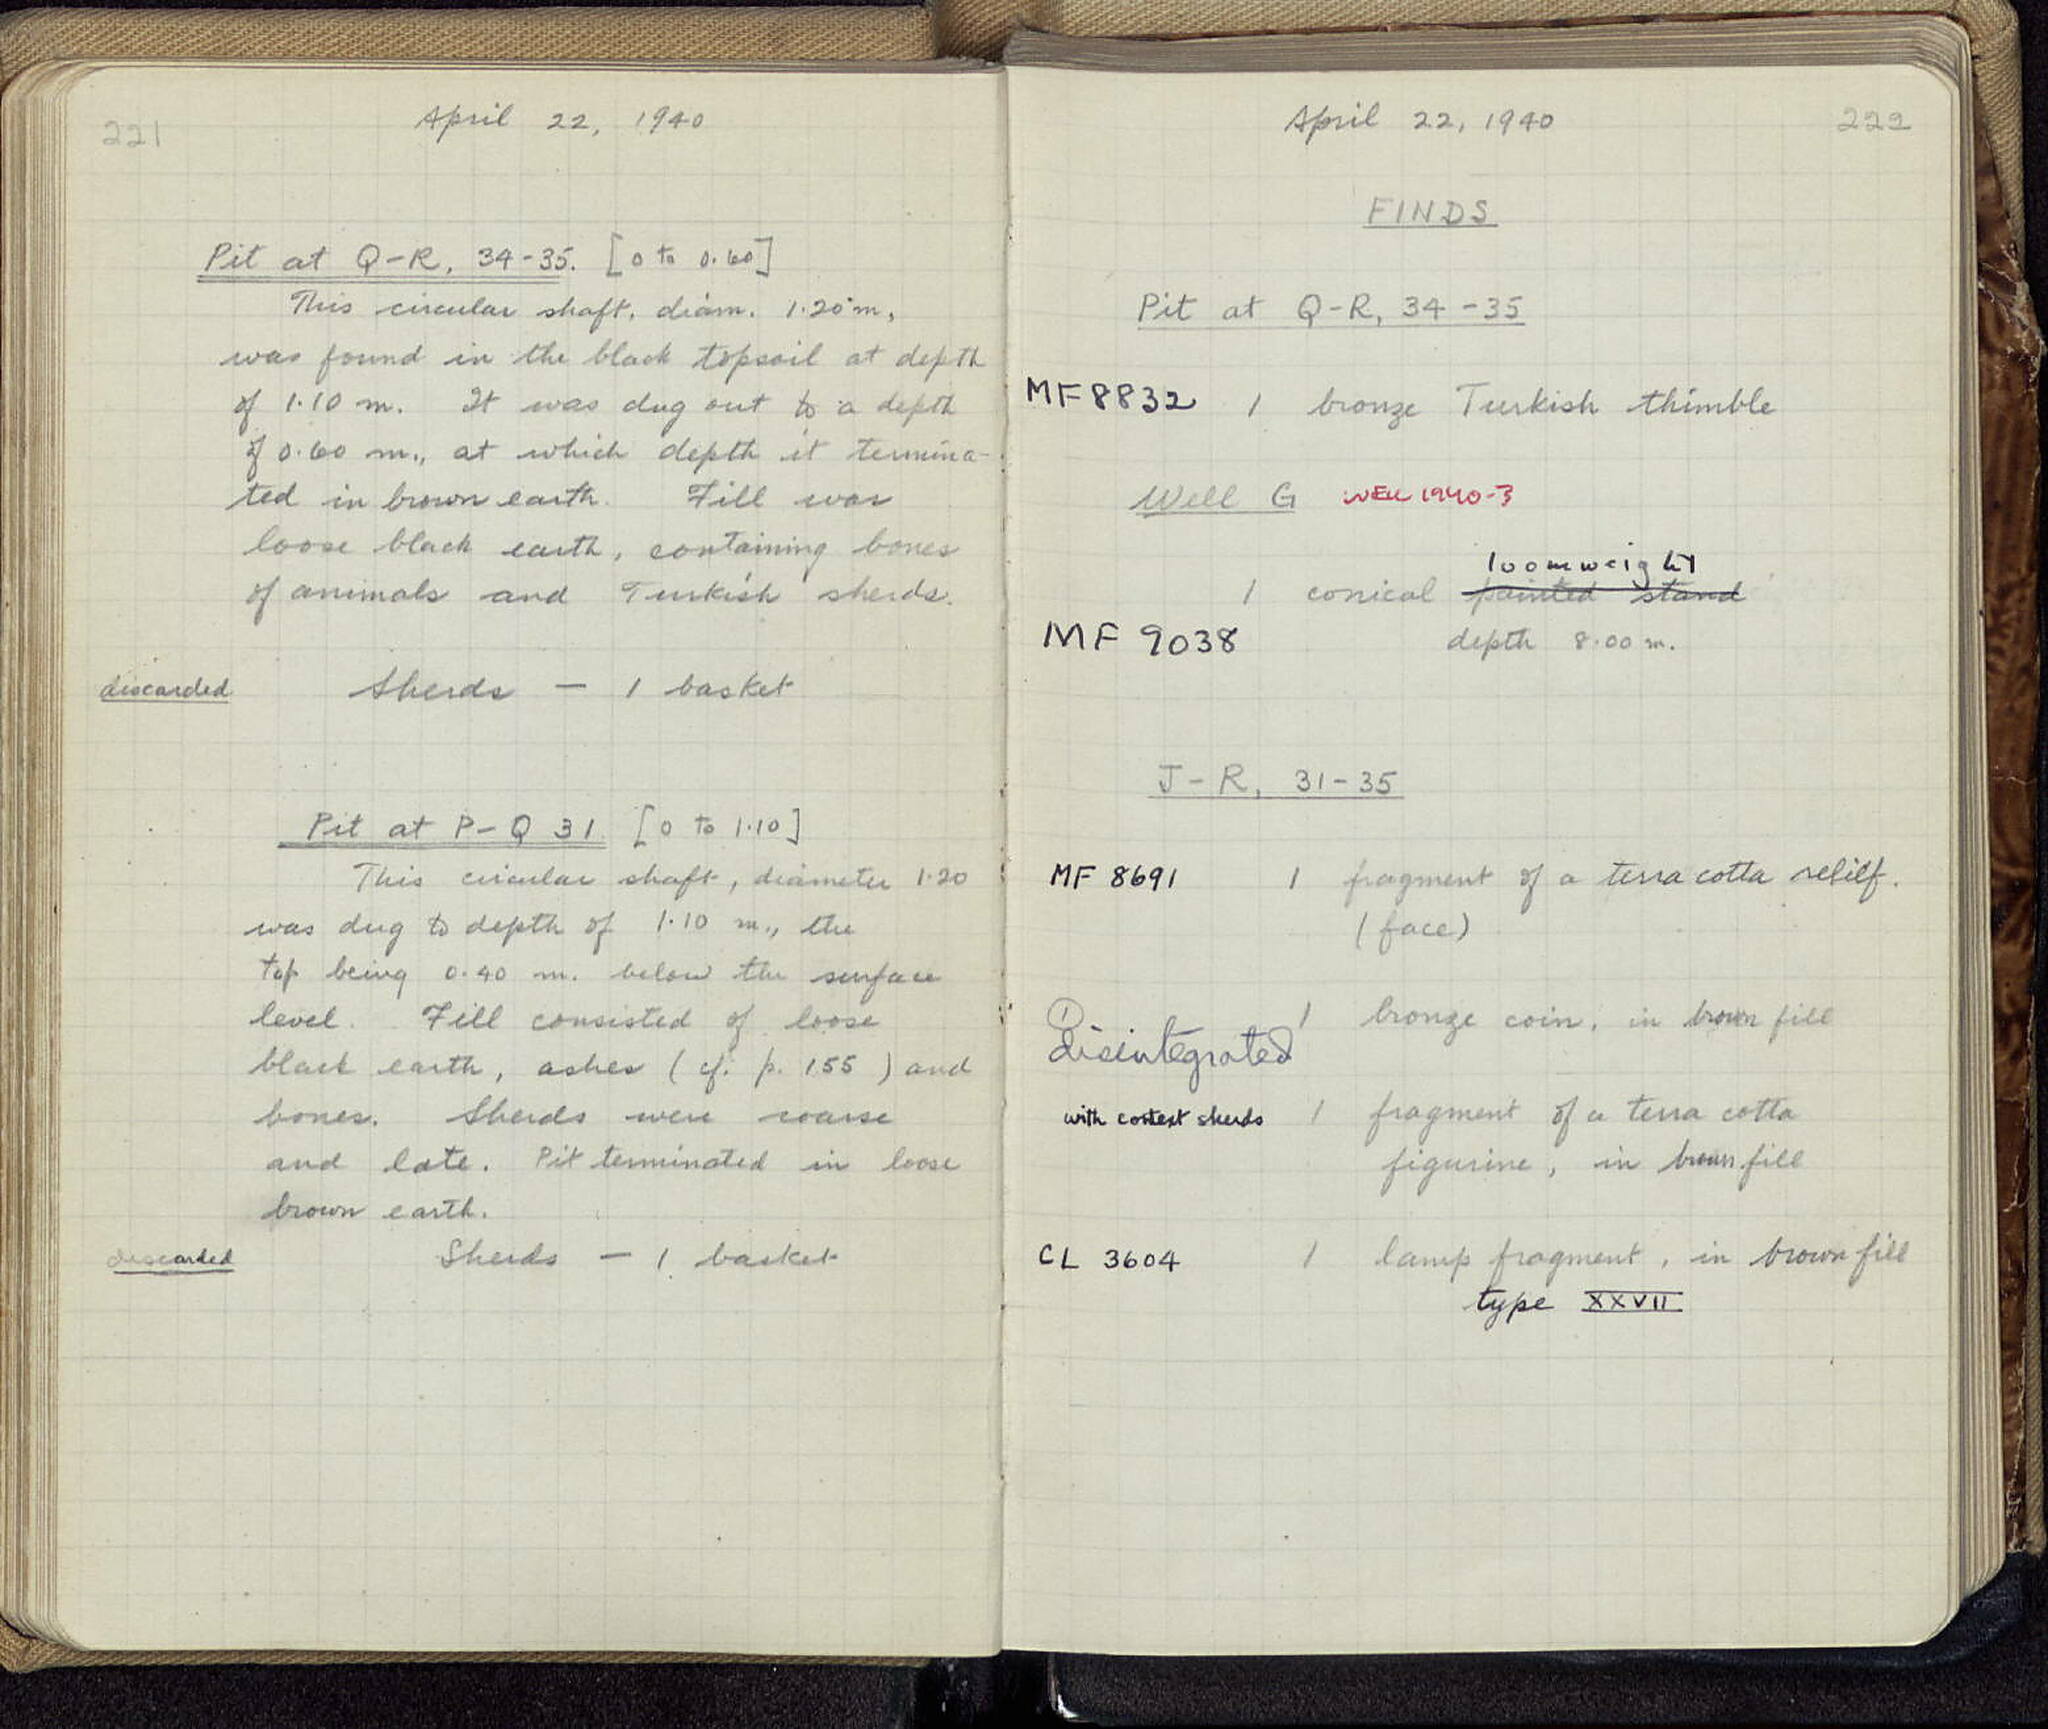 221
April 22, 1940
Pit at Q-R, 34-35. [0 to 0.60]
This circular shaft, diam. 1.20 m,
was found in the black topsoil at depth
of 1.10 m. It was dug out to a depth
of 0.60 m., at which depth it termina-
ted in brown earth. Fill was
loose black earth, containing bones
of animals and Turkish sherds.
discarded Sherds — 1 basket
Pit at P-Q 31 [0 to 1.10]
This circular shaft, diameter 1.20
was dug to depth of 1.10 m., the
top being 0.40 m. below the surface
level. Fill consisted of loose
black earth, ashes (cf. p. 155) and
bones. Sherds were coarse
and late. Pit terminated in loose
brown earth.
discarded Sherds — 1 basket
April 22, 1940
222
FINDS
Pit at Q-R, 34-35
MF8832 1 bronze Turkish thimble
Well G WELL 1940-3
loomweight
1 conical painted stand
MF 9038 depth 8.00 m.
J-R, 31-35
MF 8691 1 fragment of a terra cotta relilf.
(face)
1 1 bronze coin, in brown fill
disintegrated
with context sherds 1 fragment of a terra cotta
figurine, in brown fill
CL 3604 1 lamp fragment, in brown fill
type XXVII